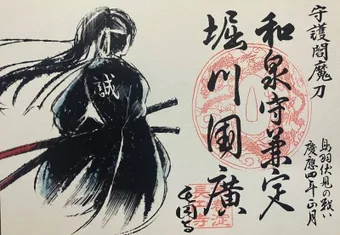 守護閻魔刀
和泉守兼定
堀川国廣
鳥羽伏見の戦い
慶應四年正月
誠